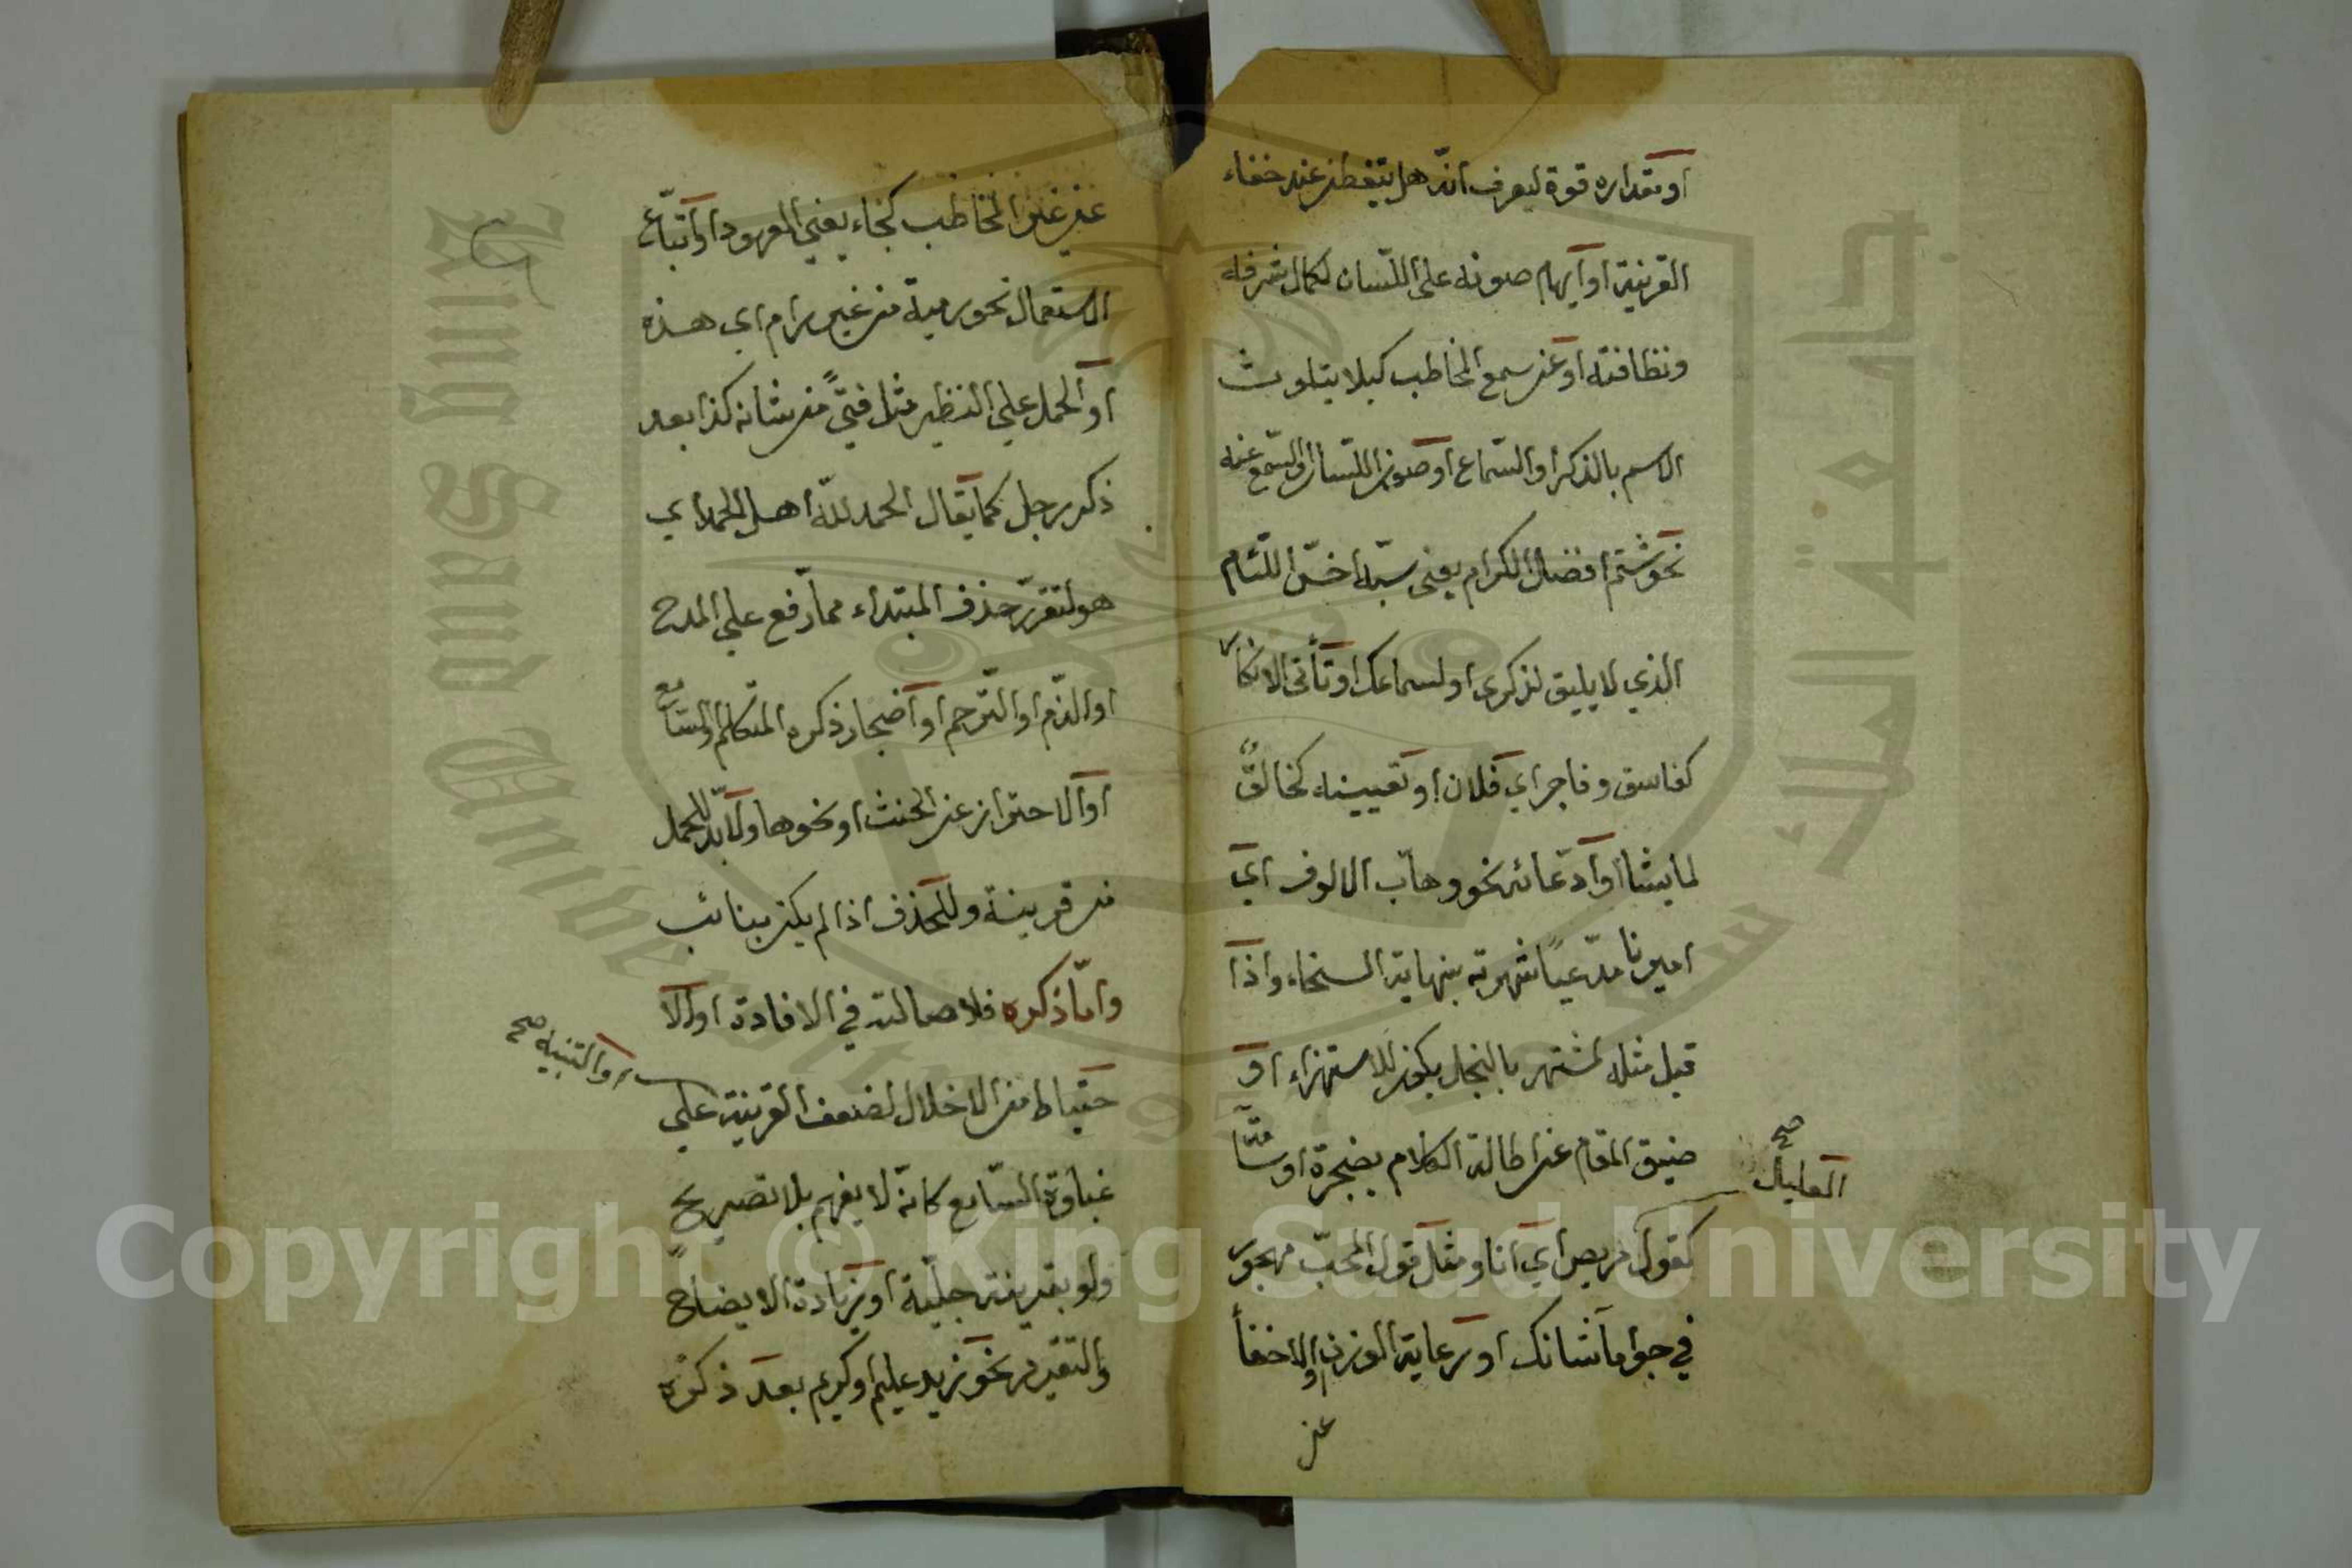 او مقداره قوة ليعرف انّه هل يتفطن عند خفاء
القرينة او ايهام صونه على اللسان لكمال شرفه
ونظافته او عن سمع المخاطب كيلا يتلوث
الاسم بالذكر او السّماع او صون اللسان او السّمع عنه
نحو شتم افضل الكرام يعنى سبّه اخسّ اللئام
الذي لا يليق لذكرى او لسماعك او تأتى الانكار
كفاسق وفاجر اي فلان او تعيينه كخالقٌ
لما يشا او ادّعائه نحو وهاب الالوف اي
اميرنا مدّعيًا شهرته بنهاية السخاء واذا
قيل مثله لمشتهر بالبخل يكون للاستهزاء او
ضيق المقام عن اطالة الكلام بضجرة او سآمة
العليل صح
كقول مريض اي انا ومثل قول المحبّ مهجور
في جواب ما شانك او رعاية الوزن او الاخفأ
عن
غير عين المخاطب كجاء يعني المعهود او اتباع
الاستعمال نحو رمية من غير رام اي هذه
او الحمل علي النظير مثل فتىً من شانه كذا بعد
ذكر رجل كما يقال الحمد للّه اهل الحمد اي
هو لتقرّر حذف المبتداء مما رفع علي المدح
او الذّم او التّرحم او اضجار ذكره المتكلم او السامع
او الاحتراز عن الحنث او نحوها ولا بدّ للحمل
من قرينة وللحذف اذا لم يكن بنائب
وامّا ذكره فلاصالته في الافادة او الا
حتياط من الاخلال لضعف القرينة علي
او التنبيه صح
غباوة السّامع كانّه لا يفهم بلا تصريح
ولو بقرينة جليّة او زيادة الايضاح
والتقرير نحو زيد عليم او كريم بعد ذكره
Copyright © King Saud University
King Saud University
جامعة الملك سعود
1957